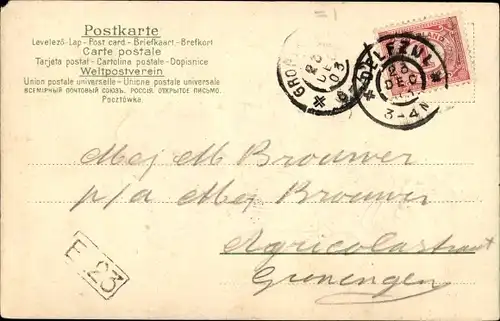 Postkarte
Levelező-Lap - Post card - Briefkaart - Brefkort
Carte postale
Tarjeta postal - Cartolina postale - Dopisnice
Weltpostverein
Union postale universelle - Unione postale universale
ВСЕМІРНЫЙ ПОЧТОВЫЙ СОЮЗЪ. РОССІЯ. ОТКРЫТОЕ ПИСЬМО.
Pocztówka
GRON
23
03
DELFZIJL
23
DEC
3-4N
Mej M Brouwer
p/a Mej Brouwer
Agricolastraat
Groningen
E 23